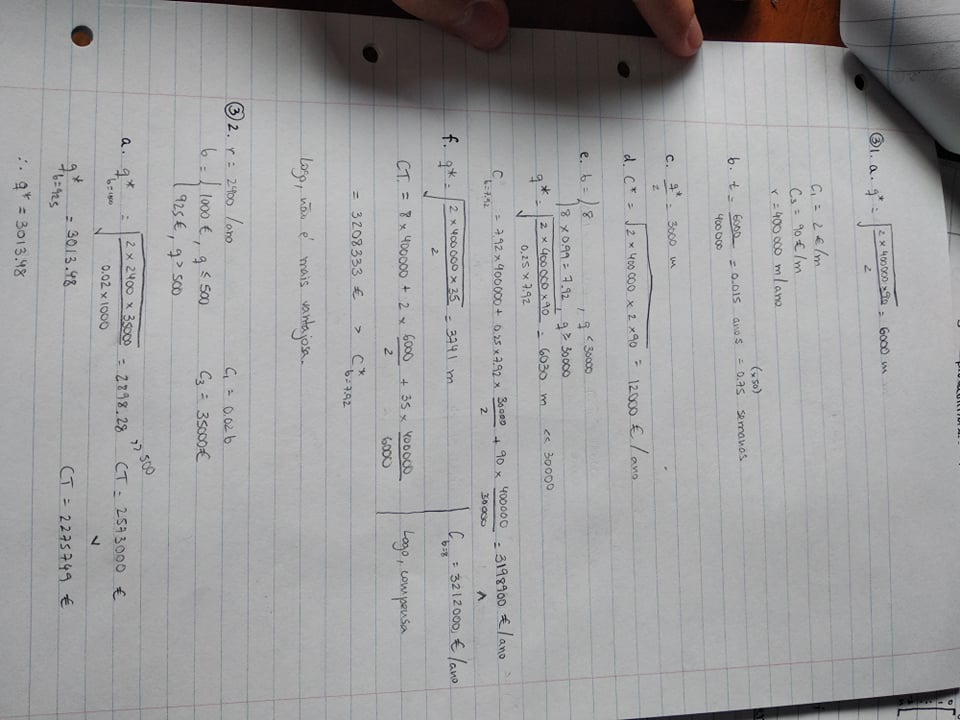 ③1. a. q* = √(2 × 400000 × 90 / 2) = 6000 m
C₁ = 2 €/m
C₃ = 90 €/m
r = 400 000 m/ano
b. t = 6000/400000 = 0.015 anos = (x50) 0.75 semanas
c. q*/2 = 3000 m
d. C* = √(2 × 400000 × 2 × 90) = 12000 € / ano
e. b = { 8 , q < 30000
8 × 0.99 = 7.92 , q ≥ 30000
q* = √(2 × 400000 × 90 / 0.25 × 7.92) = 6030 m << 30000
C b=7.92 = 7.92 × 400000 + 0.25 × 7.92 × 30000/2 + 90 × 400000/30000 = 3198900 € / ano
^
C b=8 = 3212000 € / ano
Logo, compensa
f. q* = √(2 × 400000 × 35 / 2) = 3741 m
CT. = 8 × 400000 + 2 × 6000/2 + 35 × 400000/6000
= 3208333 € > C* b=7.92
Logo, não é mais vantajosa.
③2. r = 2400 /ano C₁ = 0.02 b
b = { 1000 €, q ≤ 500 C₃ = 35000€
925 €, q > 500
a. q* b=1000 = √(2 × 2400 × 35000 / 0.02 × 1000) = 2898.28 >> 500 CT = 2573000 €
v
q* b=925 = 3013.48 CT = 2275749 €
∴ q* = 3013.48